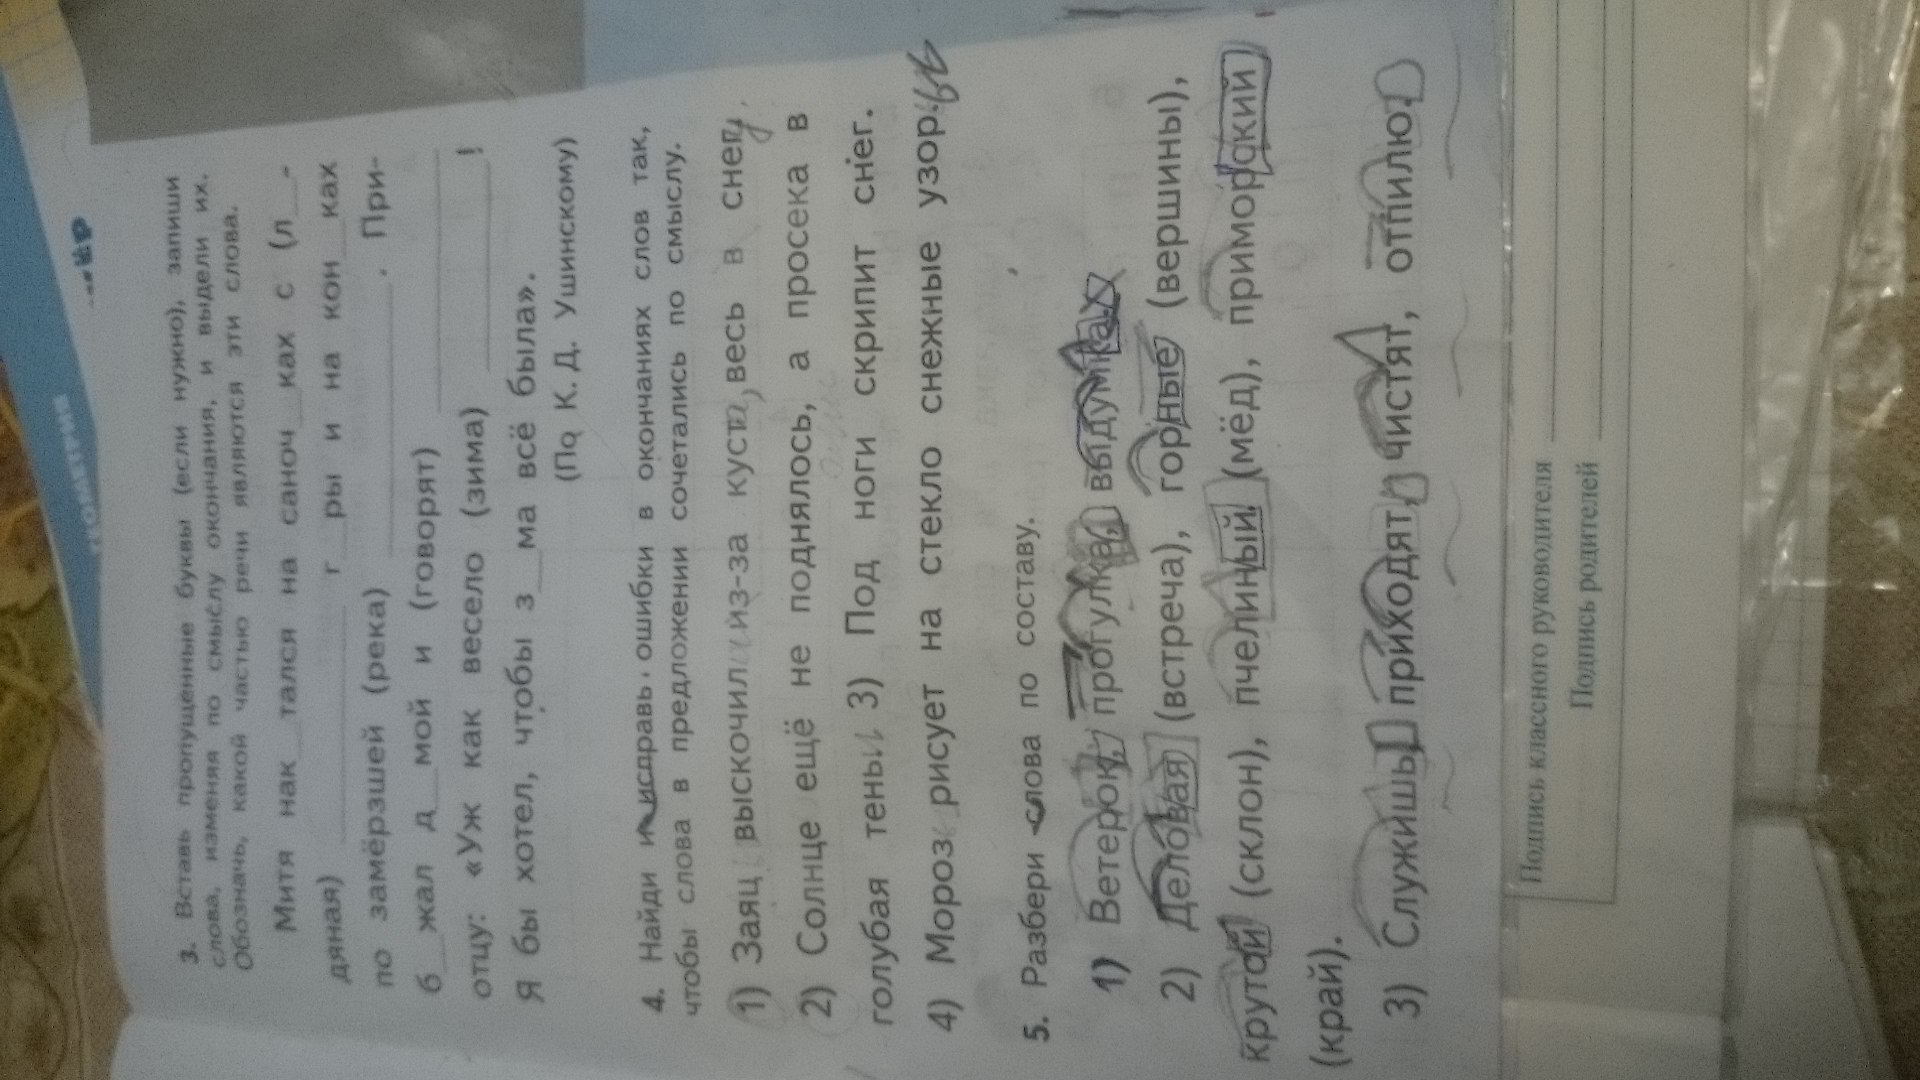 3. Вставь пропущенные буквы (если нужно), запиши
слова, изменяя по смыслу окончания, и выдели их.
Обозначь, какой частью речи являются эти слова.
Митя нак__тался на саноч__ках с (л__-
дяная) ________ г__ры и на кон__ках
по замёрзшей (река) ________. При-
б__жал д__мой и (говорят) ________
отцу: «Уж как весело (зима) ________!
Я бы хотел, чтобы з__ма всё была».
(По К. Д. Ушинскому)
4. Найди и исправь ошибки в окончаниях слов так,
чтобы слова в предложении сочетались по смыслу.
1) Заяц выскочил из-за куста, весь в снегу.
2) Солнце ещё не поднялось, а просека в
голубая тены. 3) Под ноги скрипит снег.
4) Мороз рисует на стекло снежные узор.
5. Разбери слова по составу.
1) Ветерок, прогулка, выдумка.
2) Деловая (встреча), горные (вершины),
крутой (склон), пчелиный (мёд), приморский
(край).
3) Служишь, приходят, чистят, отпилю.
Подпись классного руководителя
Подпись родителей